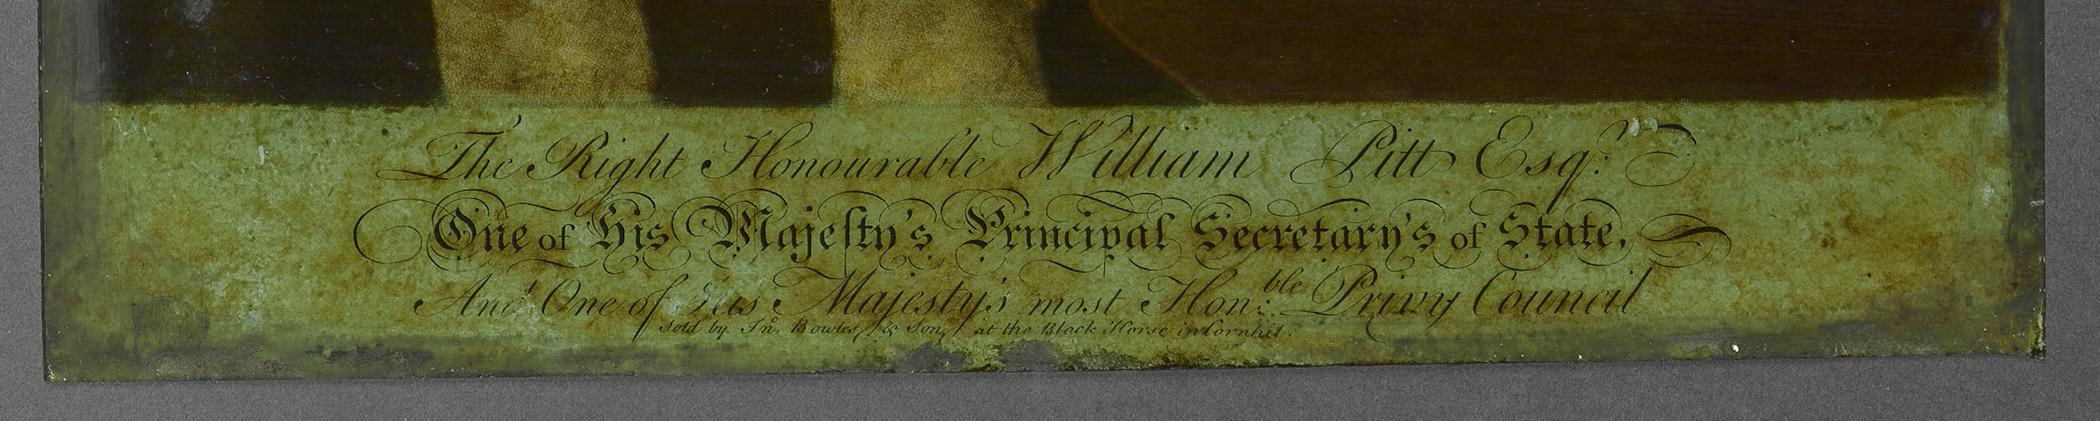 The Right Honourable William Pitt Esqr.
One of His Majeſty's Principal Secretary's of State,
And One of His Majesty's most Hon:ble Privy Council
Sold by Jno. Bowles, & Son, at the Black Horse in Cornhil.